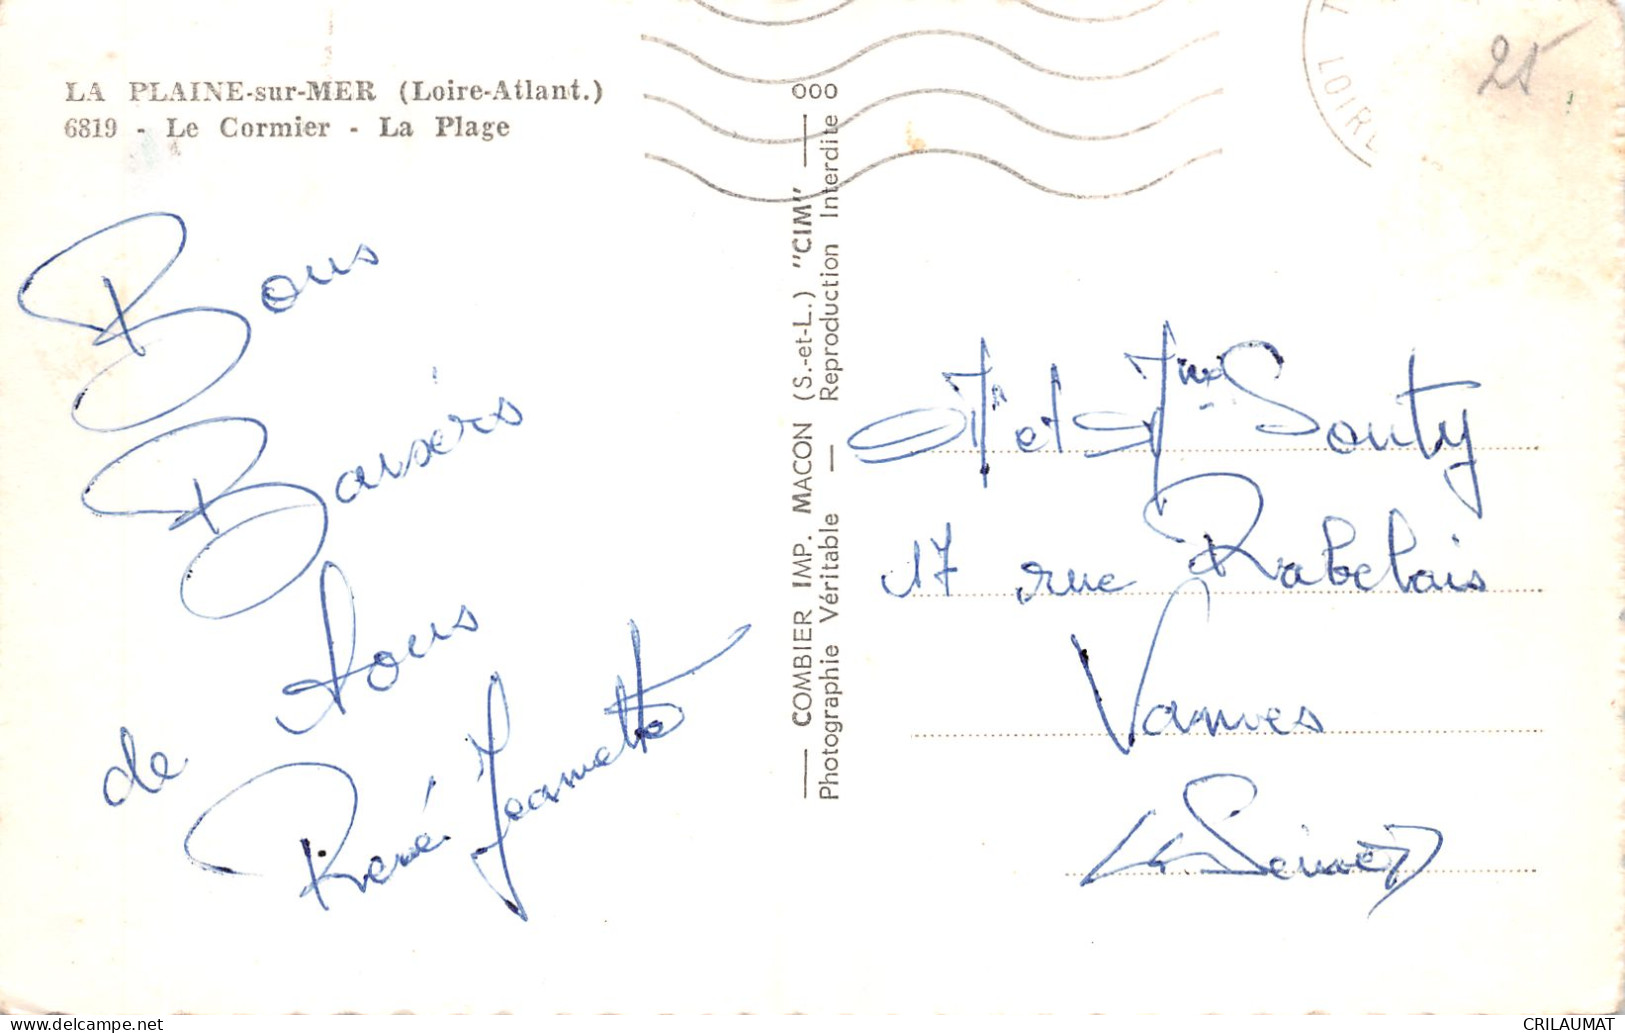 LA PLAINE-sur-MER (Loire-Atlant.)
6819 - Le Cormier - La Plage
Bons
Baisers
de tous
René Jeannette
COMBIER IMP. MACON (S.-et-L.) "CIM"
Photographie Véritable — Reproduction Interdite
000
LOIRE
25
Mr et Mme Souty
17 rue Rabelais
Vanves
(Seine)
delcampe.net
CRILAUMAT